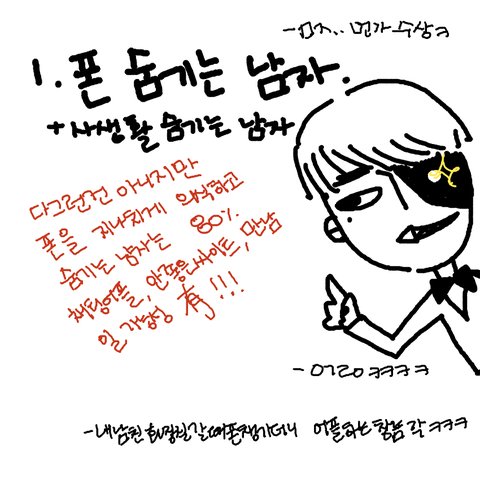 -ㅁㅈ.. 먼가 수상ㅋ
1. 폰 숨기는 남자.
+ 사생활 숨기는 남자
다그런건 아니지만
폰을 지나치게 의식하고
숨기는 남자는 80%
채팅어플, 안좋은싸이트, 만남
일 가능성 有!!!
-ㅇㄱㄹㅇㅋㅋㅋㅋ
-내남친 화장실갈때폰챙기더니 어플하는창뜸 ㅋㅋㅋ